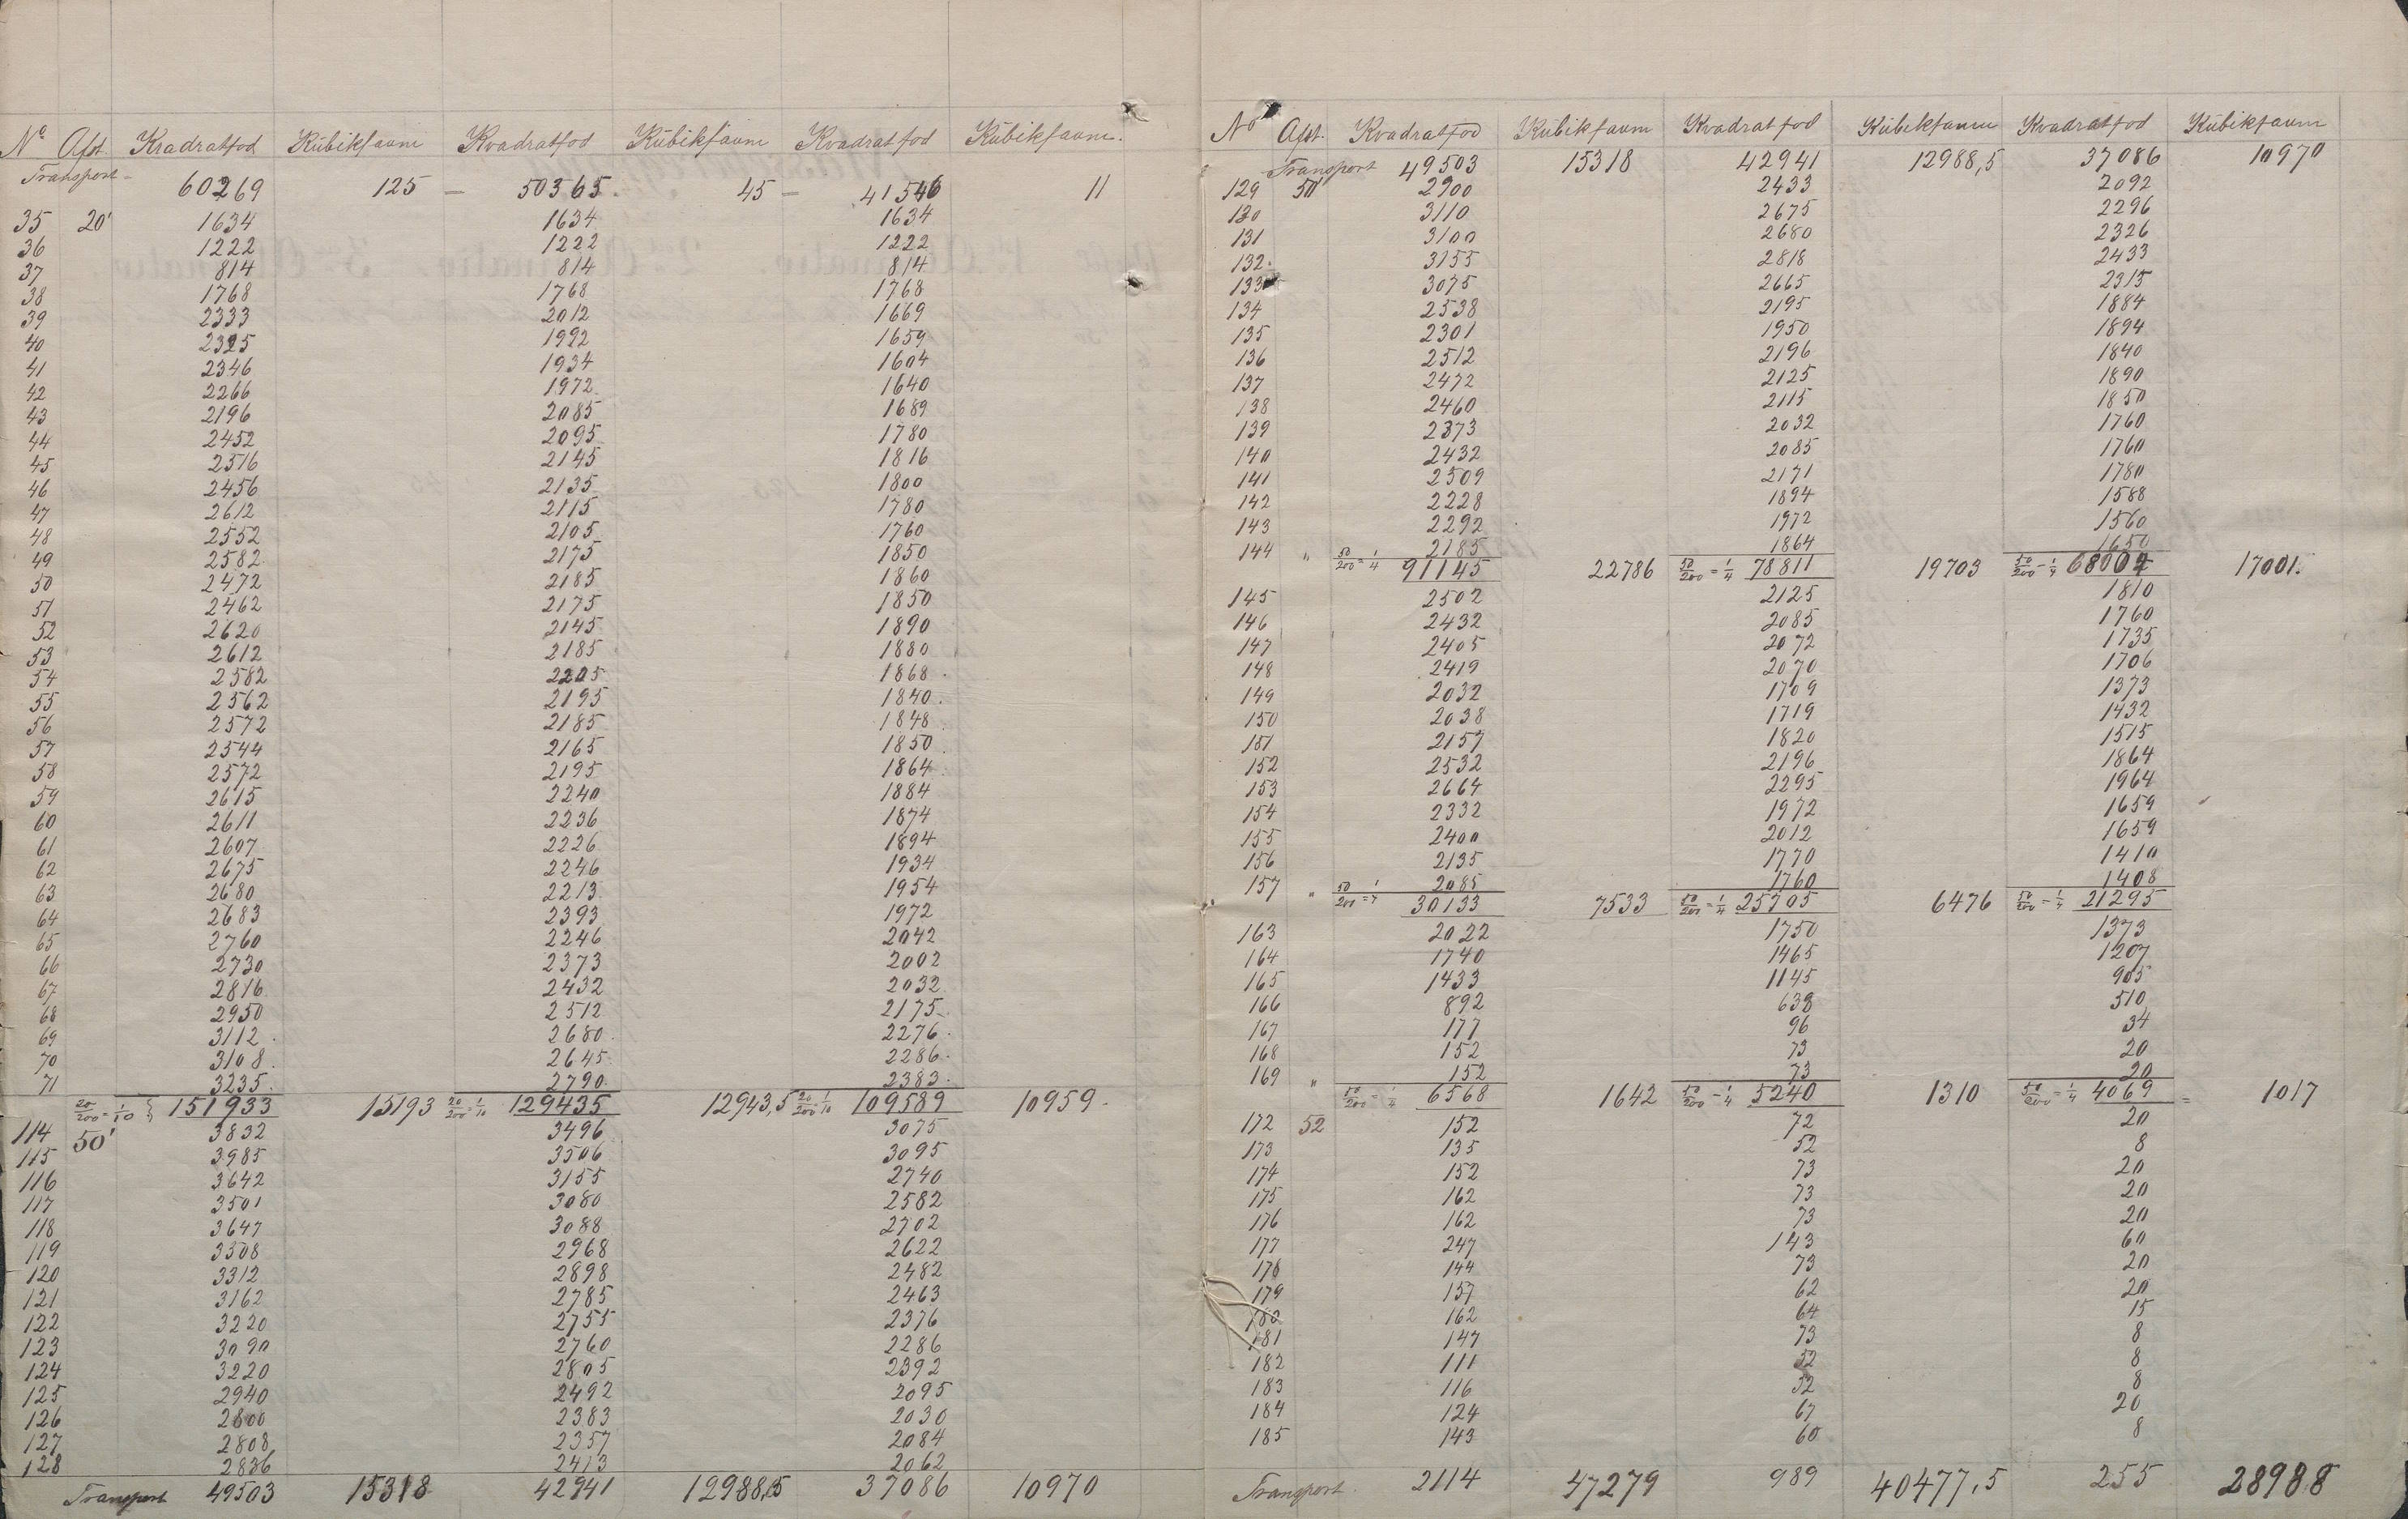 No Afst. Kvadratfod Kubikfavn Kvadratfod Kubikfavn Kvadratfod Kubikfavn.
Transport 60269 125 — 50365. 45 — 41546 11
35 20' 1634 1634 1634
36 1222 1222 1222
37 814 814 814
38 1768 1768 1768
39 2333 2012 1669
40 2325 1992 1659
41 2346 1934 1604
42 2266 1972 1640
43 2196 2085 1689
44 2452 2095 1780
45 2516 2145 1816
46 2456 2135 1800
47 2612 2115 1780
48 2552 2105 1760
49 2582 2175 1850
50 2472 2185 1860
51 2462 2175 1850
52 2620 2145 1890
53 2612 2185 1880
54 2582 2205 1868
55 2562 2195 1840
56 2572 2185 1848
57 2544 2165 1850
58 2572 2195 1864
59 2615 2240 1884
60 2611 2236 1874
61 2607 2226 1894
62 2675 2246 1934
63 2680 2213 1954
64 2683 2393 1972
65 2760 2246 2042
66 2730 2373 2002
67 2816 2432 2032
68 2950 2512 2175
69 3112 2680 2276
70 3108 2645 2286
71 3235 2790 2383
20/200 = 1/10 151933 15193 20/200 = 1/10 129435 12943,5 20/200 = 1/10 109589 10959
114 50' 3832 3496 3075
115 3985 3506 3095
116 3642 3155 2740
117 3501 3080 2582
118 3647 3088 2702
119 3308 2968 2622
120 3312 2898 2482
121 3162 2785 2463
122 3220 2755 2376
123 3090 2760 2286
124 3220 2805 2392
125 2940 2492 2095
126 2800 2383 2030
127 2808 2357 2084
128 2836 2413 2062
Transport 49503 15318 42941 12988,5 37086 10970
No Afst. Kvadratfod Kubikfavn Kvadratfod Kubikfavn Kvadratfod Kubikfavn
Transport 49503 15318 42941 12988,5 37086 10970
129 50' 2900 2433 2092
130 3110 2675 2296
131 3100 2680 2326
132 3155 2818 2433
133 3075 2665 2315
134 2538 2195 1884
135 2301 1950 1894
136 2512 2196 1840
137 2472 2125 1890
138 2460 2115 1850
139 2373 2032 1760
140 2432 2085 1760
141 2509 2171 1780
142 2228 1894 1588
143 2292 1972 1560
144 " 2185 1864 1650
50/200 = 1/4 91145 22786 50/200 = 1/4 78811 19703 50/200 = 1/4 68004 17001.
145 2502 2125 1810
146 2432 2085 1760
147 2405 2072 1735
148 2419 2070 1706
149 2032 1709 1373
150 2038 1719 1432
151 2157 1820 1515
152 2532 2196 1864
153 2664 2295 1964
154 2332 1972 1659
155 2400 2012 1659
156 2135 1770 1410
157 " 2085 1760 1408
50/200 = 1/4 30133 7533 50/200 = 1/4 25705 6476 50/200 = 1/4 21295
163 2022 1750 1373
164 1740 1465 1207
165 1433 1145 905
166 892 638 510
167 177 96 34
168 152 73 20
169 " 152 73 20
50/200 = 1/4 6568 1642 50/200 = 1/4 5240 1310 50/200 = 1/4 4069 = 1017
172 52 152 72 20
173 135 52 8
174 152 73 20
175 162 73 20
176 162 73 20
177 247 143 60
178 144 73 20
179 157 62 20
180 162 64 15
181 147 73 8
182 111 52 8
183 116 52 8
184 124 67 20
185 143 60 8
Transport. 2114 47279 989 40477,5 255 28988